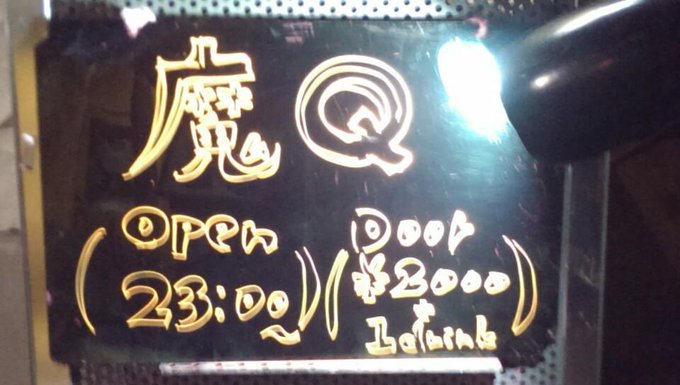 魔Q
Open
23:00〜
Door
¥3000
+
1drink